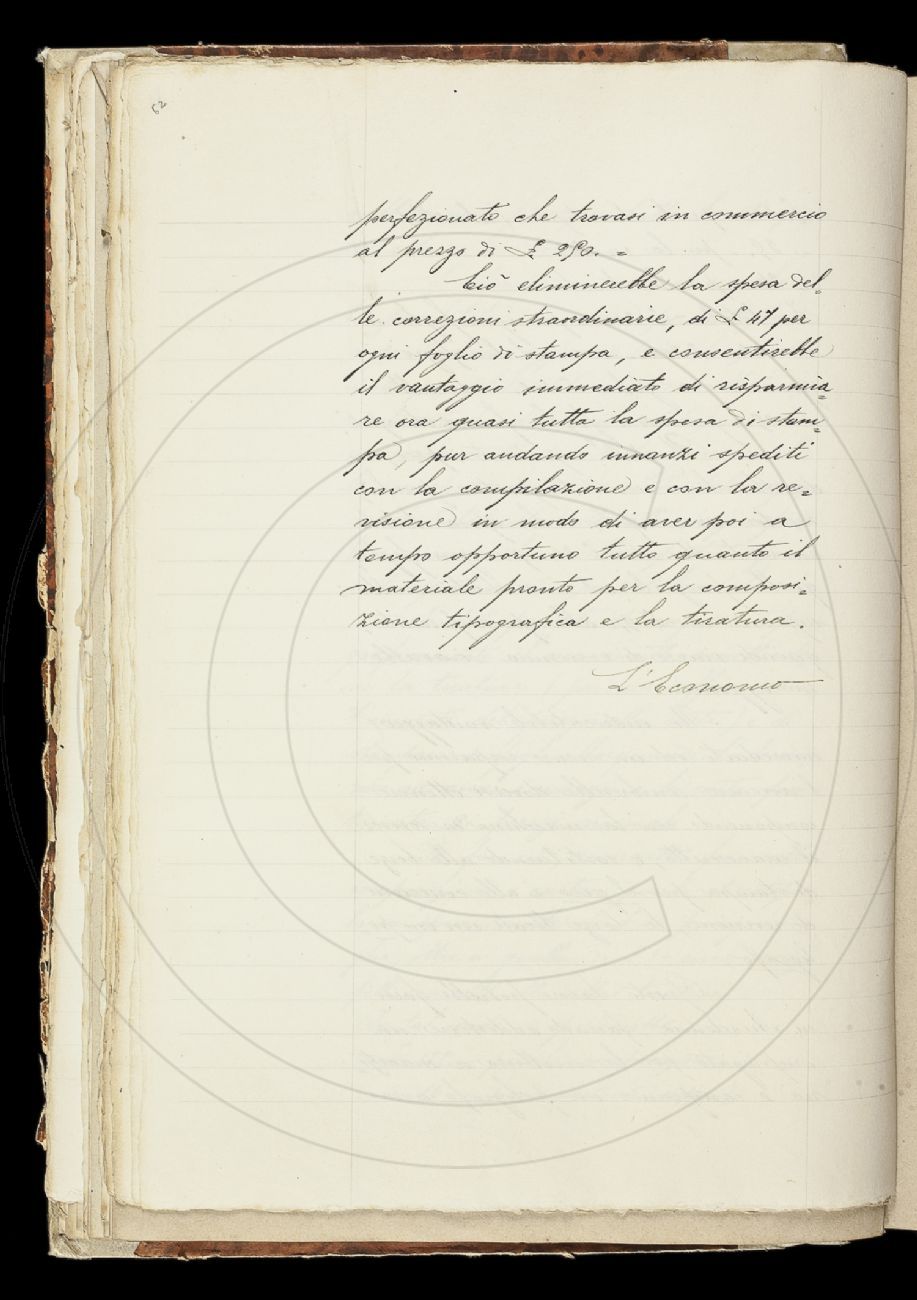 62
perfezionato che trovasi in commercio
al prezzo di £ 250. =
Ciò eliminerebbe la spesa del=
le correzioni straordinarie, di £ 47 per
ogni foglio di stampa, e consentirebbe
il vantaggio immediato di risparmia=
re ora quasi tutta la spesa di stam=
pa, pur andando innanzi spediti
con la compilazione e con la re=
visione in modo di aver poi a
tempo opportuno tutto quanto il
materiale pronto per la composi=
zione tipografica e la tiratura.
L'Economo